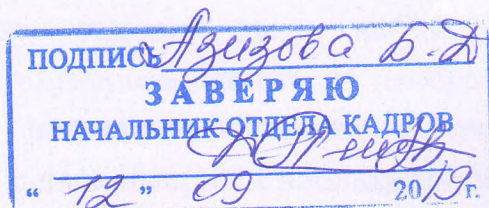 ПОДПИСЬ Азизова Б.Д
ЗАВЕРЯЮ
НАЧАЛЬНИК ОТДЕЛА КАДРОВ
“ 12 ” 09 2019 г.